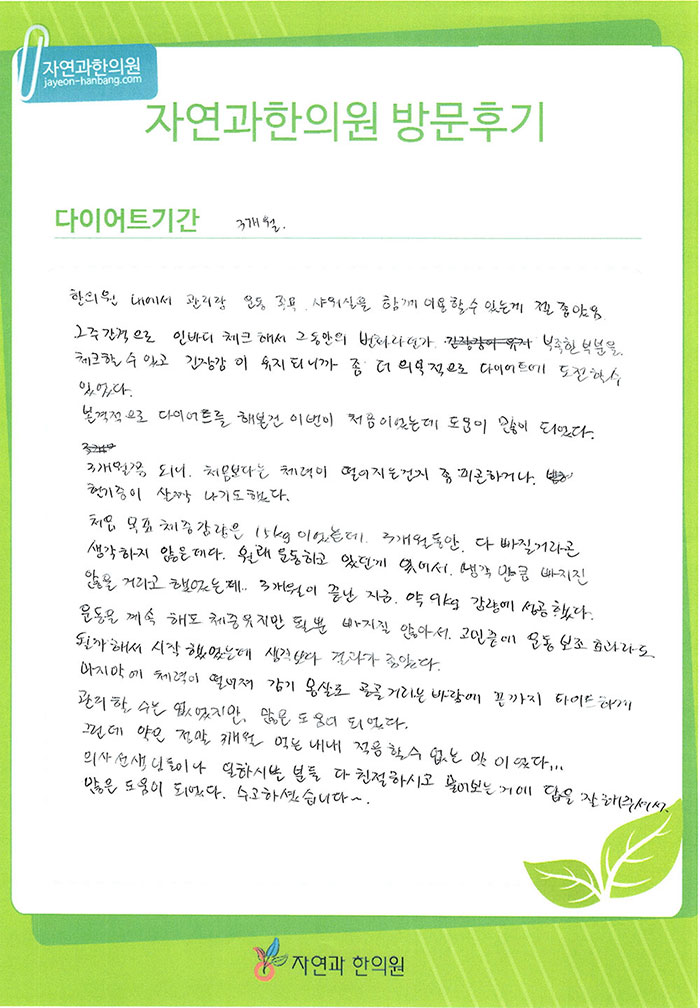 자연과한의원
jayeon-hanbang.com
자연과한의원 방문후기
다이어트기간 3개월.
한의원 내에서 관리랑 운동 족욕, 샤워실을 함께 이용할수 있는게 젤 좋았음
2주간격으로 인바디 체크 해서 그동안의 변화라던가 긴장감이 유지 부족한 부분을
체크할 수 있고 긴장감이 유지되니까 좀 더 의욕적으로 다이어트에 도전할수
있었다.
본격적으로 다이어트를 해본건 이번이 처음이었는데 도움이 많이 되었다.
3개월쯤 되니, 처음보다는 체력이 떨어지는건지 좀 피곤하거나,
현기증이 살짝 나기도했다.
처음 목표 체중감량은 15kg 이었는데. 3개월동안, 다 빠질거라곤
생각하지 않은데다. 원래 운동하고 있던게 있어서, 생각만큼 빠지진
않을 거라고 했었는데.. 3개월이 끝난 지금, 약 9kg 감량에 성공했다.
운동을 계속 해도 체중유지만 될뿐 빠지질 않아서, 고민중에 운동 보조 효과라도
될까해서 시작했었는데 생각보다 결과가 좋았다.
마지막에 체력이 떨어져 감기 몸살로 골골거리는 바람에 끝까지 타이트하게
관리할 수는 없었지만, 많은 도움이 되었다.
그런데 약은 정말 3개월 먹는내내 적응할수 없는 맛이었다...
의사선생님들이나 일하시는 분들 다 친절하시고 물어보는거에 답을 잘해주셔서,
많은 도움이 되었다. 수고하셨습니다~.
자연과 한의원